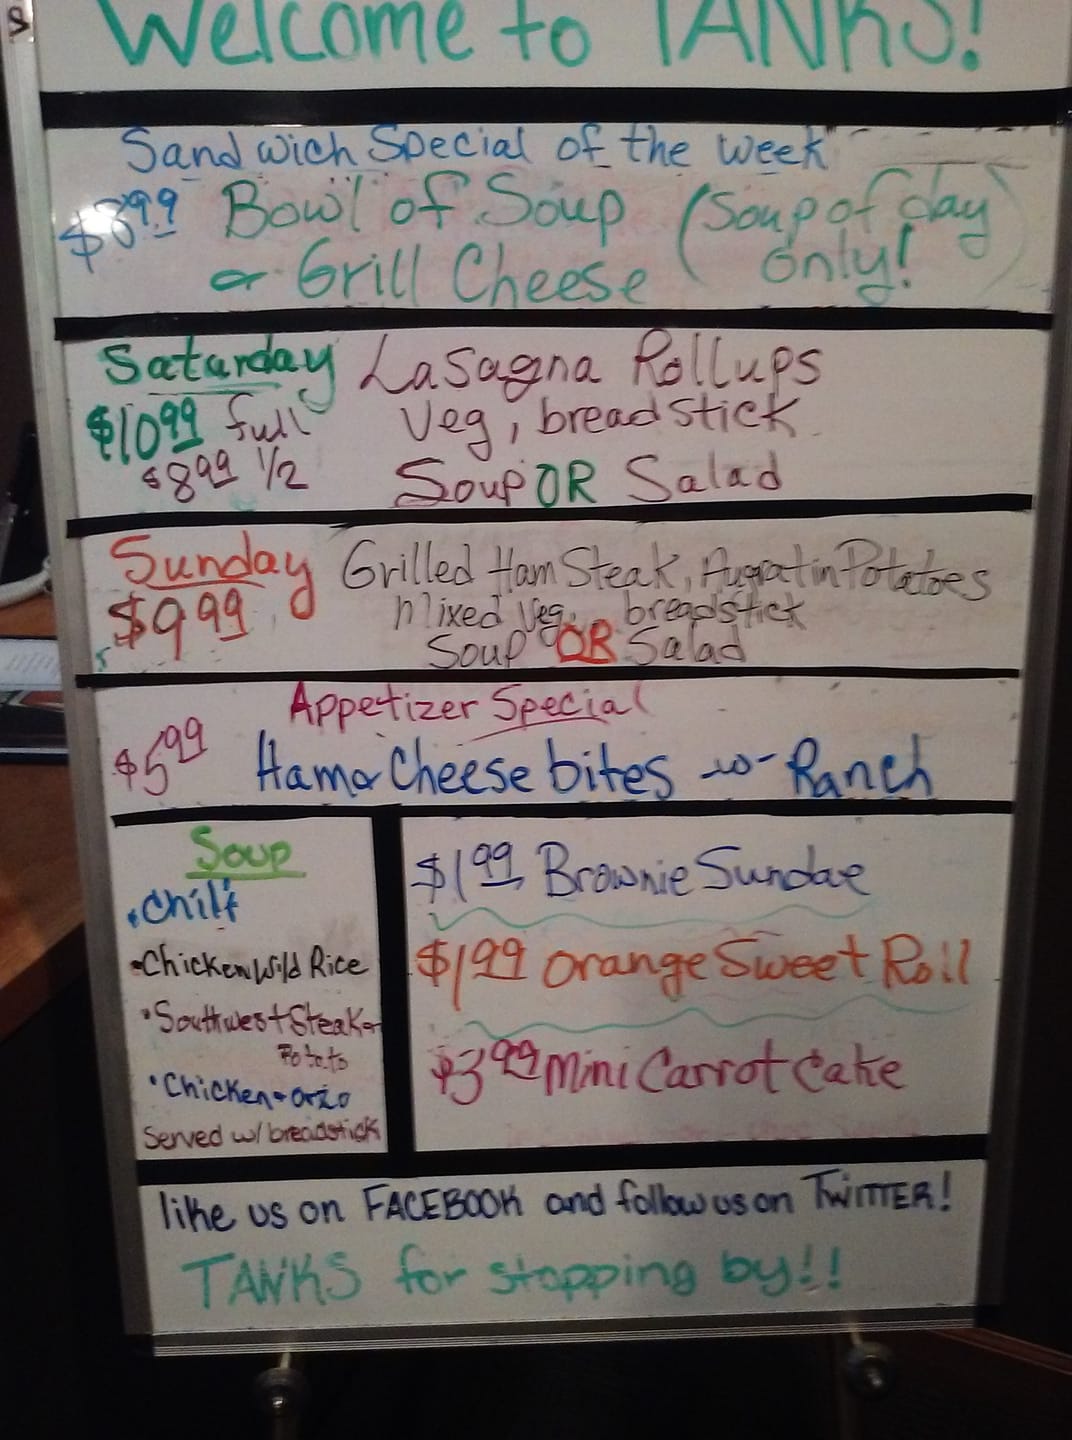 Welcome to TANKS!
Sandwich Special of the week
$8.99 Bowl of Soup (Soup of day
or Grill Cheese only!)
Saturday LaSagna Rollups
$10.99 full Veg, breadstick
$8.99 1/2 Soup OR Salad
Sunday Grilled Ham Steak, Augratin Potatoes
$9.99 mixed veg, breadstick
Soup OR Salad
Appetizer Special
$5.99 Ham & Cheese bites w- Ranch
Soup
• Chili
• Chicken Wild Rice
• Southwest Steak &
Potato
• Chicken & Orzo
Served w/ breadstick
$1.99 Brownie Sundae
$1.99 Orange Sweet Roll
$3.99 Mini Carrot Cake
like us on FACEBOOK and follow us on TWITTER!
TANKS for stopping by!!